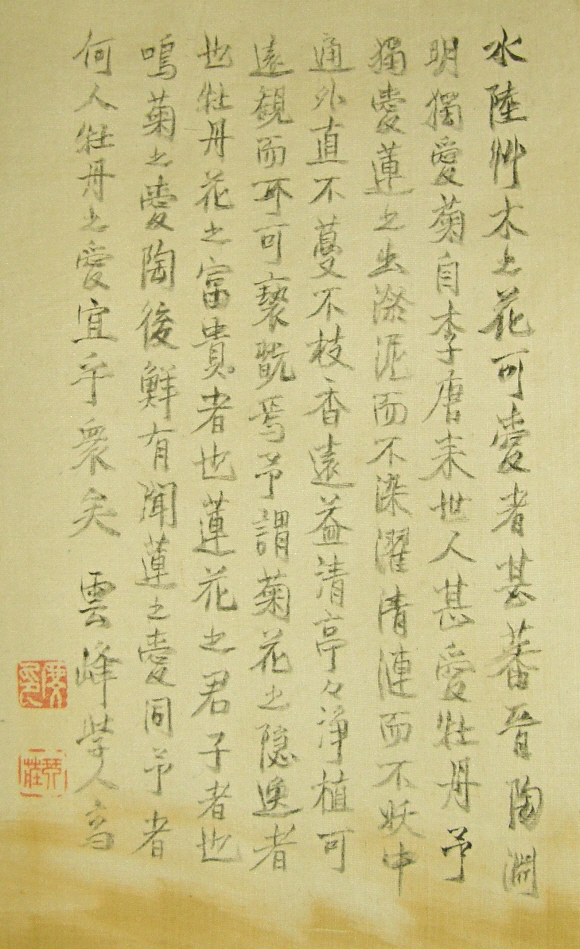 水陸艸木之花可愛者甚蕃晉陶淵
明獨愛菊自李唐来世人甚愛牡丹予
獨愛蓮之出淤泥而不染濯清漣而不妖中
通外直不蔓不枝香遠益清亭々淨植可
遠観而不可褻翫焉予謂菊花之隠逸者
也牡丹花之富貴者也蓮花之君子者也
鳴菊之愛陶後鮮有聞蓮之愛同予者
何人牡丹之愛宜乎衆矣 雲峰学人